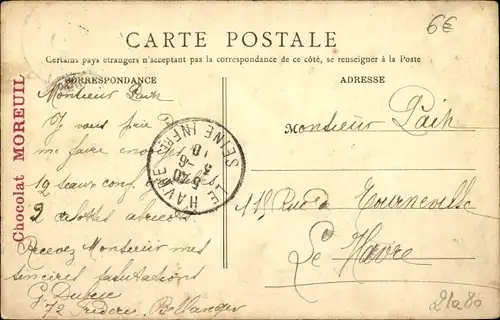 6€
CARTE POSTALE
Certains pays étrangers n'acceptant pas la correspondance de ce côté, se renseigner à la Poste
CORRESPONDANCE
ADRESSE
Chocolat MOREUIL
Monsieur Paih
Je vous prie
me faire
12 seaux conf
2
Recevez Monsieur mes
sincires salutations
G. Dubuc
72 Frederic Bellanger
LE HAVRE
SEINE INFRE
Monsieur Paih
11 Rue de Tourneville
Le Havre